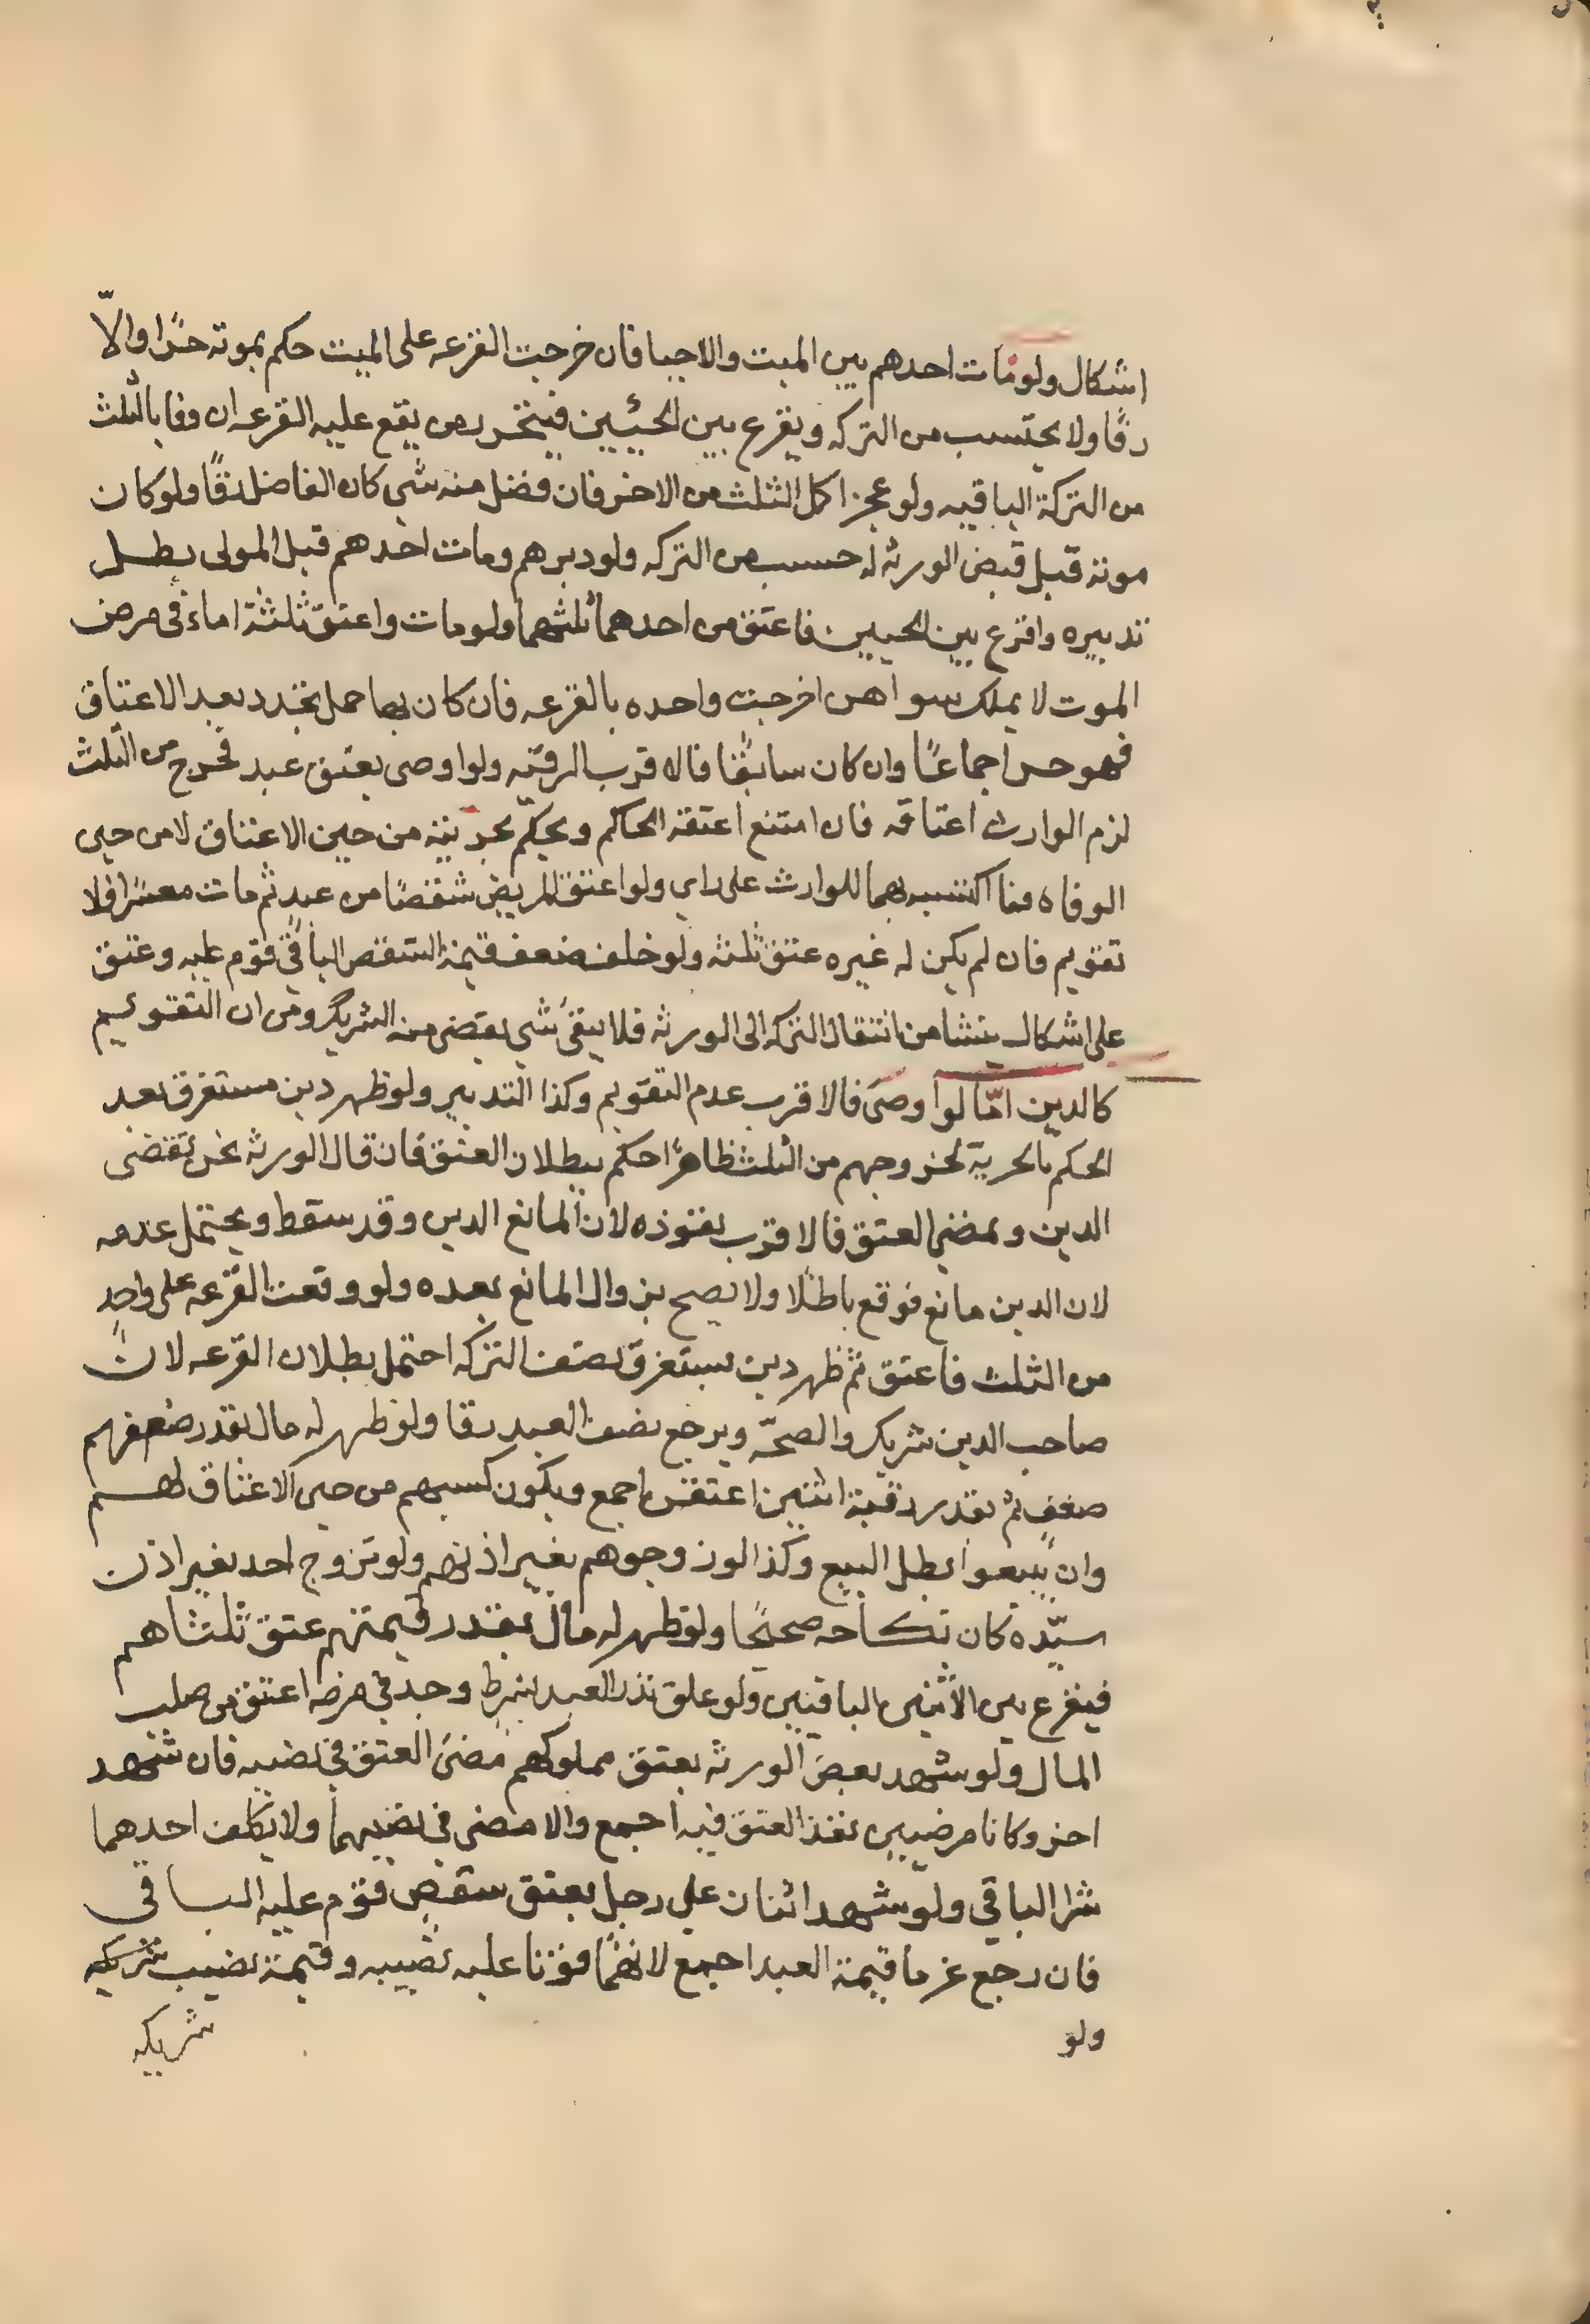 اشكال ولو مات احدهم بين الميت والاحيا فان خرجت القرعه على الميت حكم بموته حرًا والّا
رقًا ولا يحتسب من التركه ويقرع بين الحيّين فيتحرر من يقع عليه القرعه ان وفا بالثلث
من التركة الباقيه ولو عجز اكمل الثلث من الاخر فان فضل منه شي كان الفاضل رقًا ولو كان
موته قبل قبض الورثه له حسب من التركه ولو دبرهم ومات احدهم قبل المولى بطل
تدبيره واقرع بين الحيين فاعتق من احدهما ثلثهما ولو مات واعتق ثلثة اماء في مرض
الموت لا يملك سواهن اخرجت واحده بالقرعه فان كان بها حمل تجدد بعد الاعتاق
فهو حر اجماعًا وان كان سابقًا فالاقرب الرقيّه ولو اوصى بعتق عبد فخرج من الثلث
لزم الوارث اعتاقه فان امتنع اعتقه الحاكم ويحكم بحريته من حين الاعتاق لا من حين
الوفاه فما اكتسبه بهما للوارث على راي ولو اعتق المريض شقصًا من عبد ثم مات معسرًا فلا
تقويم فان لم يكن له غيره عتق ثلثه ولو خلف ضعف قيمة الشقص الباقي قوّم عليه وعتق
على اشكال ينشا من انتقال التركه الى الورثه فلا يبقى شي يقضى منه الشريك ومن ان التقويم
كالدين امّا لو اوصى فالاقرب عدم التقويم وكذا التدبير ولو ظهر دين مستغرق بعد
الحكم بالحرية لخروجهم من الثلث ظاهرًا حكم ببطلان العتق فان قال الورثه نحن نقضى
الدين ونمضي العتق فالاقرب نفوذه لان المانع الدين وقد سقط ويحتمل عدمه
لان الدين مانع فوقع باطلًا ولا يصح بزوال المانع بعده ولو وقعت القرعه على واحد
من الثلث فاعتق ثم ظهر دين يستغرق نصف التركه احتمل بطلان القرعه لان
صاحب الدين شريك والصحّه ويرجع نصف العبد رقا ولو ظهر له مال بقدر ضعفهم
ضعف ثم بقدر رقبة اثنين اعتقن اجمع ويكون كسبهم من حين الاعتاق لهم
وان بيعوا بطل البيع وكذا لو زوجوهم بغير اذنهم ولو تزوج احد بغير اذن
سيّده كان نكاحه صحيحًا ولو ظهر له مال بقدر قيمتهم عتق ثلثاهم
فيقرع بين الاثنين الباقيين ولو علق نذر العبد بشرط وجد في مرضه اعتق من صلب
المال ولو شهد بعض الورثه بعتق مملوكهم مضى العتق في نصيبه فان شهد
اخر وكانا مرضيين نفذ العتق فيه اجمع والا مضى في نصيبهما ولا يكلف احدهما
شرا الباقي ولو شهد اثنان على رجل بعتق شقص قوّم عليه الباقي
فان رجع غرما قيمة العبد اجمع لانهما فوتا عليه نصيبه وقيمة نصيب شريكه
ولو
شريكه